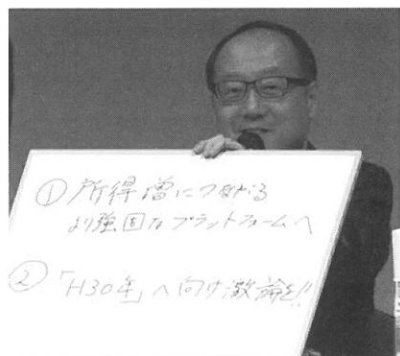 ①所得増につながる
より強固なプラットフォームへ
②「H30年」へ向け激論を!!